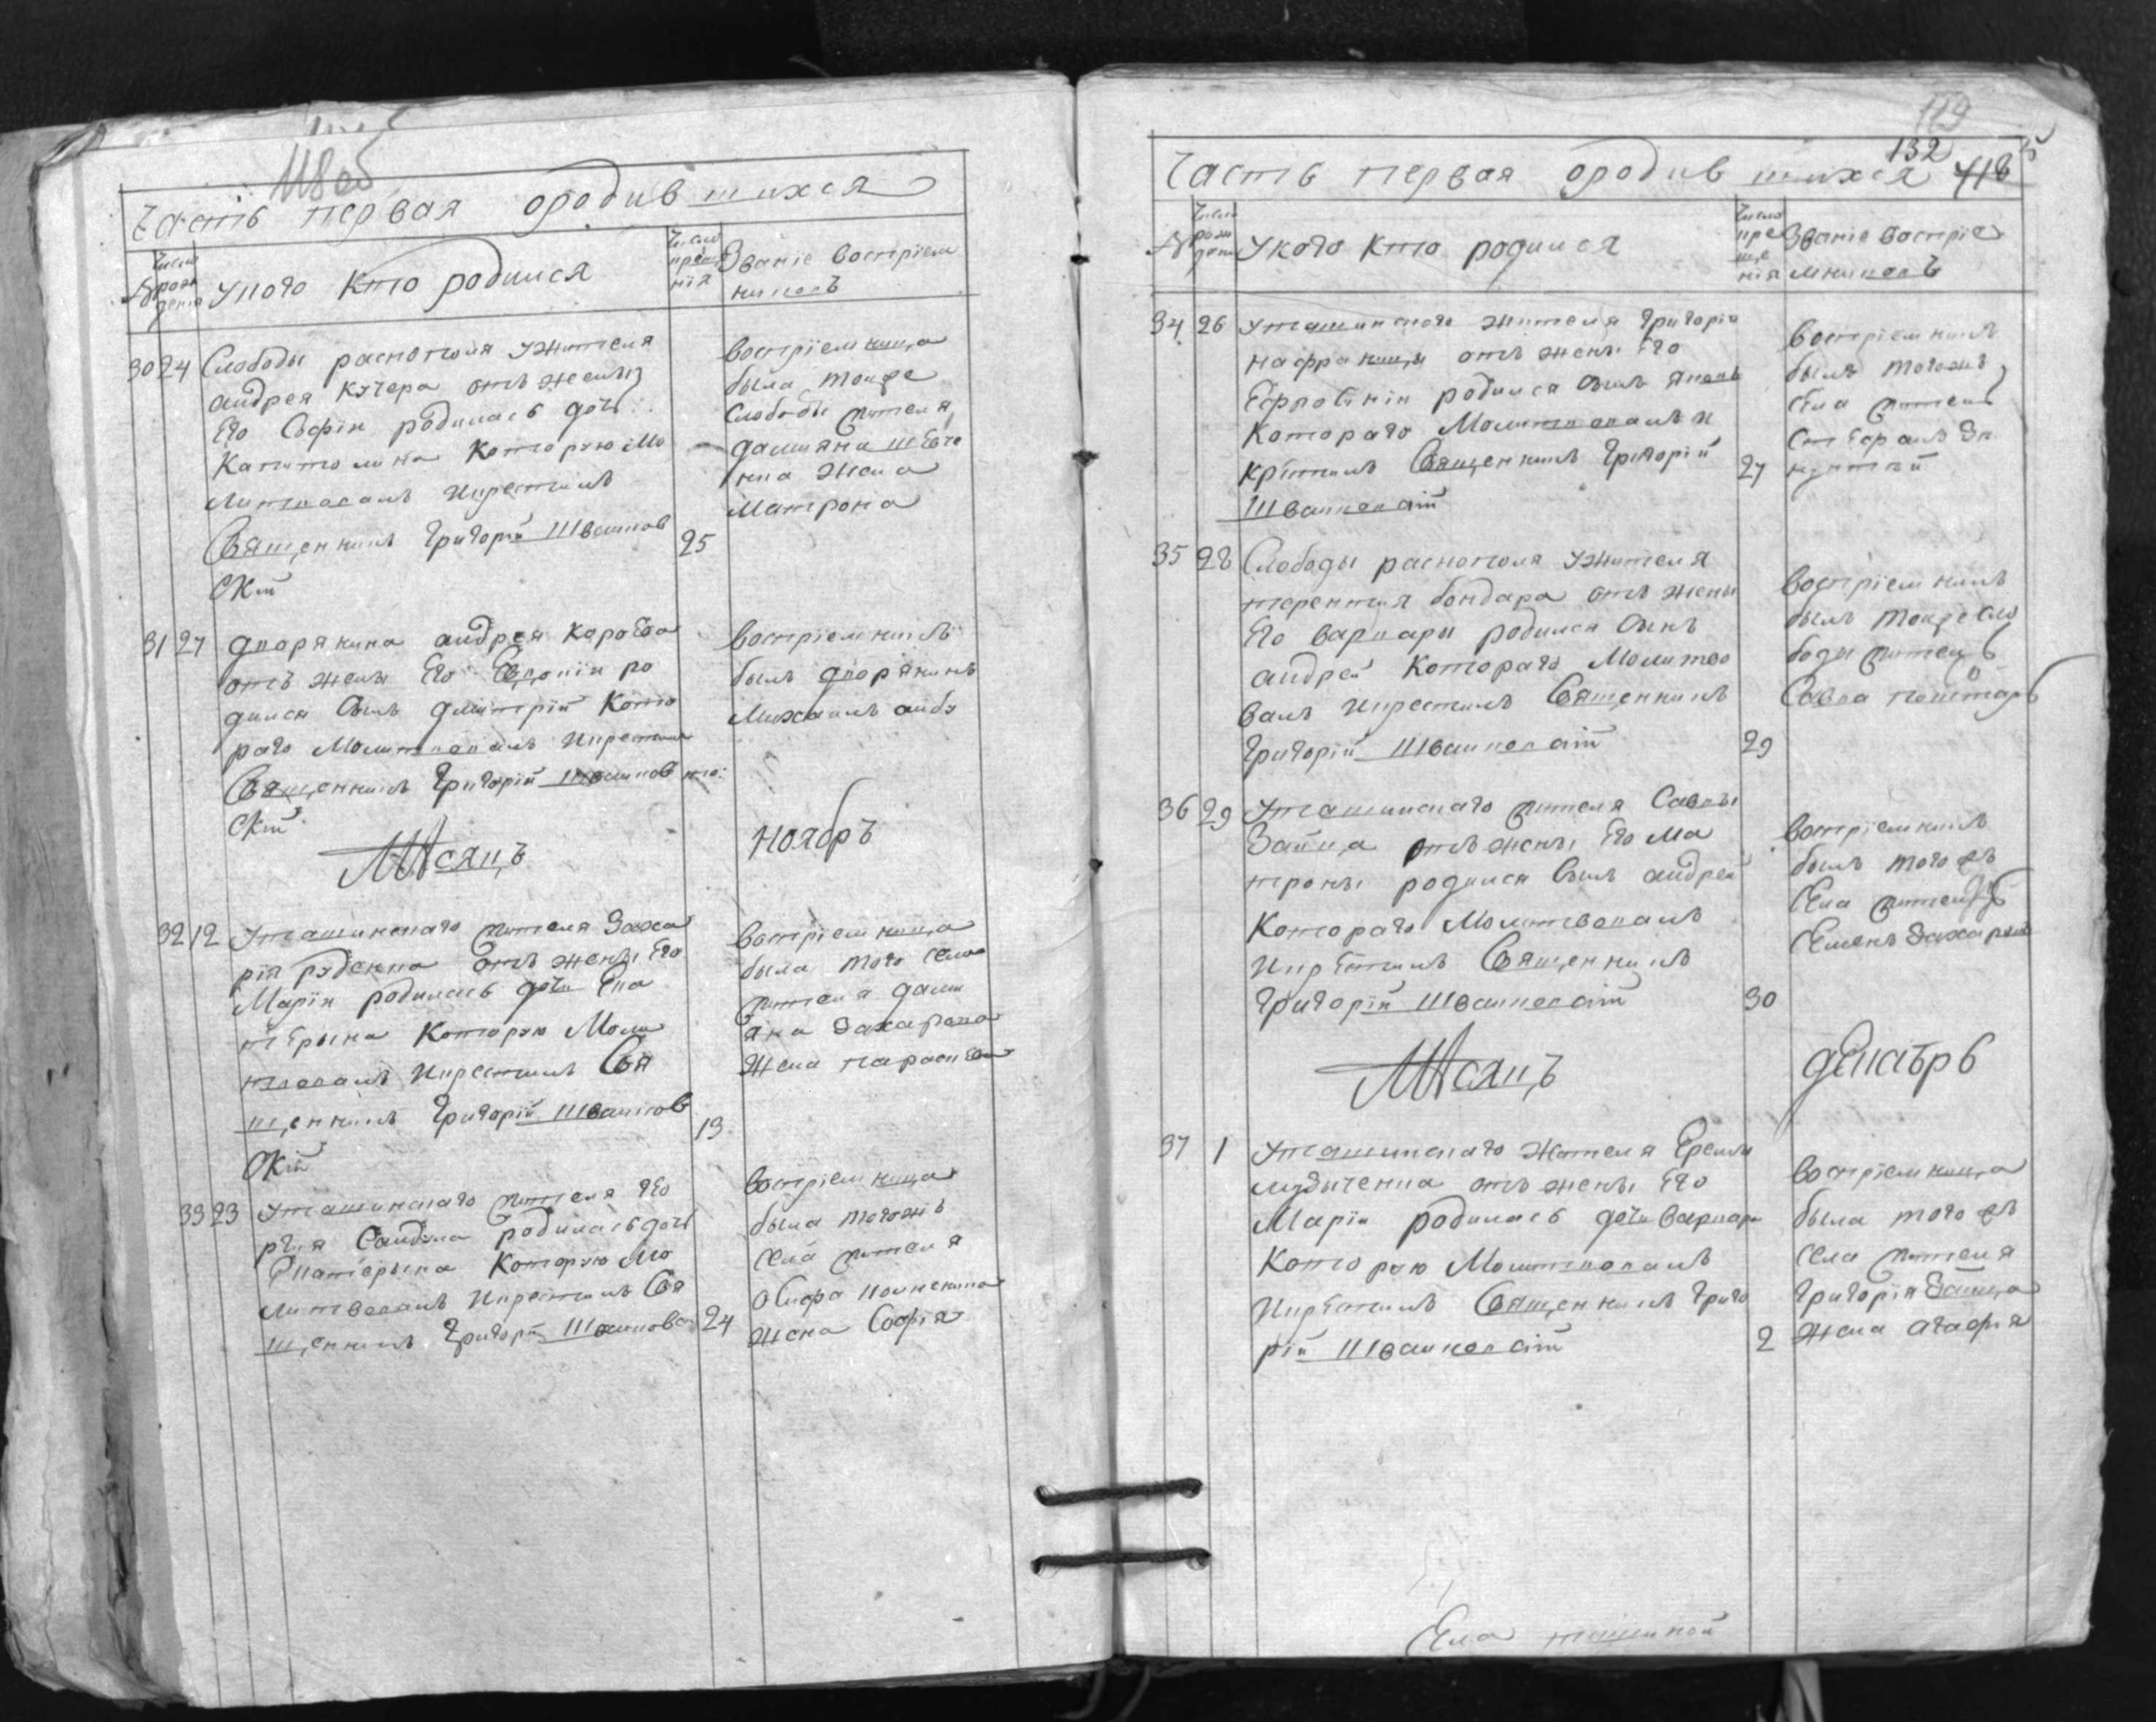 118 об
Часть первая ородив шихся
№ Число рожденія
Укого Кто родился
Число крещенія
Званіе восприем
никовъ
30 24 Слободы распополя Ужителя
андрея Кучера отъ жены
Его Софіи родилась дочь
Капитолина Которую Мо
литвовалъ икрестилъ
Священникъ Григорій Шванков
скій
25
восприемница
была тойже
Слободы жителя
дамияна
жена
Матрона
31 27 дворянина андрея
отъ жены Его Евдокіи ро
дился Сынъ димитрій Кото
раго Молитвовалъ икрестилъ
Священникъ Григорій Шванков
скій
восприемникъ
былъ дворянинъ
Михаилъ
Мѣсяцъ ноябръ
32 12 Уташинскаго жителя Заха
рія руденка отъ жены Его
Маріи родилась дочь Ека
терына Которую Моли
твовалъ икрестилъ Свя
щенникъ Григорій Шванков
скій
13
восприемница
была того села
жителя дами
яна Захарова
жена
33 23 Уташинскаго жителя
родилась дочь
Екатерына Которую Мо
литвовалъ икрестилъ Свя
щенникъ Григорій Шванковс
24
восприемница
была тогожъ
села жителя
жена Софія
119
132
418
Часть первая ородив шихся
№ Число рожденія
Укого Кто родился
Число пре
ще
нія
Званіе восприе
мниковъ
34 26 Уташинскаго жителя Григорія
отъ жены Его
Ефросініи родился Сынъ Яковъ
Котораго Молитвовалъ и
крѣстилъ Священникъ Григорій
Шванковскій
27
восприемникъ
былъ тогожъ
села житель
Стефанъ
35 28 Слободы распополя Ужителя
терентія бондара отъ жены
Его варвары родился Сынъ
андрей Котораго Молитво
валъ икрестилъ Священникъ
Григорій Шванковскій
29
восприемникъ
былъ тойже сло
боды житель
Савва
36 29 Уташинскаго жителя Саввы
Зайца отъ жены Его Ма
троны родился Сынъ андрей
Котораго Молитвовалъ
икрѣстилъ Священникъ
Григорій Шванковскій
30
восприемникъ
былъ того жъ
села житель
семенъ
Мѣсяцъ декабрь
37 1 Уташинскаго Жителя Еремы
отъ жены Его
Маріи родилась дочь варвара
Которую Молитвовалъ
икрѣстилъ Священникъ Григо
рій Шванковскій
2
восприемница
была того жъ
села жителя
Григорія Зайца
жена агафия
Села ташиной